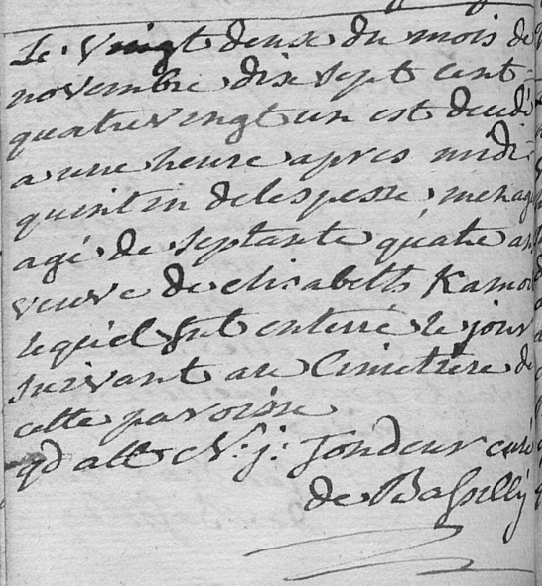 Le vingt deuse du mois de
novembre dix sept cent
quatrevingt un est decedé
a une heure apres midi
quintin delespesse menag
agé de septante quatre an
veuve de elisabeth Kamo
lequel fut enterré le jour
suivant au Cimetiere de
cette paroisse
qd att N: j: Tondeur curé
de Bassilly